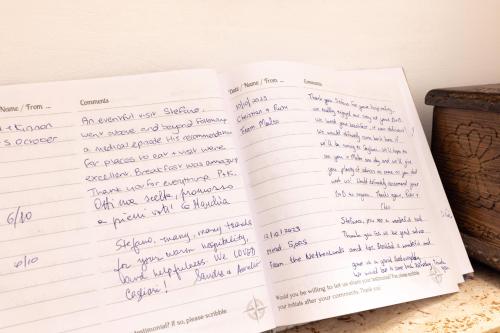 Name / From ...
Comments
McKinnon
5 October
An eventful visit. Stefano
went above and beyond following
a medical episode. His recommendations
for places to eat + visit were
excellent. Breakfast was amazing
Thank you for everything. P+K.
6/10
Ottima scelta, promossa
a pieni voti! Claudia
6/10
Stefano, many, many thanks
for your warm hospitality,
and helpfulness. We LOVED
Cagliari! Sandra &
testimonial? If so, please scribble
Date / Name / From ...
Comments
10/10/2023
Christian &
From Malta
Thank you Stefano for your hospitality,
we really enjoyed our stay at your BnB.
We loved your breakfast, it was delicious!
We would definitely come back here if
we'll be coming to Cagliari. We'll hope to
see you in Malta one day and we'll give
you plenty of advice as soon as you
visit us! Would definitely recommend your
BnB to anyone. Thank you,
Ciao!
12/10/2023
From the Netherlands
Stefano, you are a wonderful host.
Thank you for the good advice
and wonderful
Would you be willing to let us share your testimonial? If so, please scribble
your initials after your comments. Thank you.